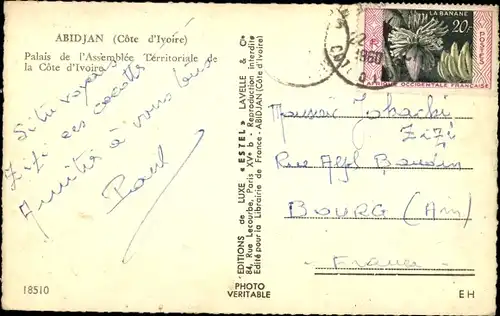 ABIDJAN (Côte d'Ivoire)
Palais de l'Assemblée Territoriale de
la Côte d'Ivoire
Si tu voyais
Zizi ces cocottes
Amitié à vous tous
Paul
18510
EDITIONS de LUXE « ESTEL » LAVELLE & Cie
84, Rue Lecourbe, Paris XVe b - Reproduction interdite
Edité pour la Librairie de France - ABIDJAN (Côte d'Ivoire)
PHOTO
VERITABLE
LA BANANE
20F
POSTES
AFRIQUE OCCIDENTALE FRANÇAISE
22
1960
Monsieur
Zizi
Rue Alph Baudin
BOURG (Ain)
France
EH